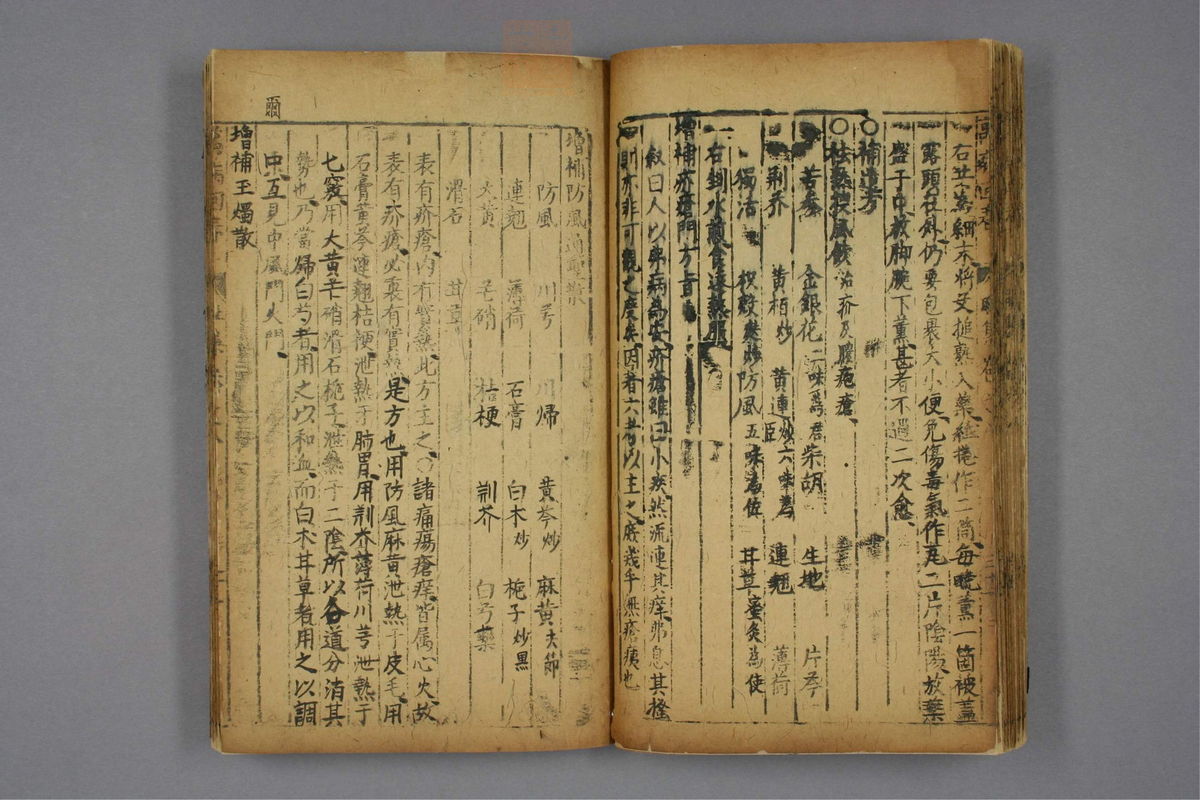 右共為細末將艾搥熟入藥𢭏捲作二筒每晚薰一箇被蓋
露頭在外仍要包裹大小便免傷毒氣作瓦二片陰陽放藥
盛于中放脚腕下薰甚者不過二次愈
○補遺考
○祛熱扶風飲治疥及膿疱瘡
苦參 金銀花二味為君 柴胡 生地 片芩
荊芥 黃栢炒 黃連炒六味為臣 連翹 薄荷
獨活 枳殼麩炒 防風五味為佐 甘草蜜灸為使
右剉水煎食遠熱服
增補疥瘡門方旨
敘曰人以弗病為安疥瘡雖曰小疾然流連其痒弗息其搔
則亦非可觀之度矣因著六考以主之庶幾乎無瘡痍也
增補防風通聖散
防風 川芎 川歸 黃芩炒 麻黃去節
連翹 薄荷 石膏 白朮炒 梔子炒黑
大黃 芒硝 桔梗 荊芥 白芍藥
滑石 甘草
表有疥瘡內有實熱此方主之○諸痛瘍瘡痒皆屬心火故
表有疥瘡必裏有實熱是方也用防風麻黃泄熱于皮毛用
石膏黃芩連翹桔梗泄熱于肺胃用荊芥薄荷川芎泄熱于
七竅用大黃芒硝滑石梔子泄熱于二陰所以各道分消其
勢也乃當歸白芍者用之以和血而白朮甘草者用之以調
中互見中風門火門
增補玉燭散
爾